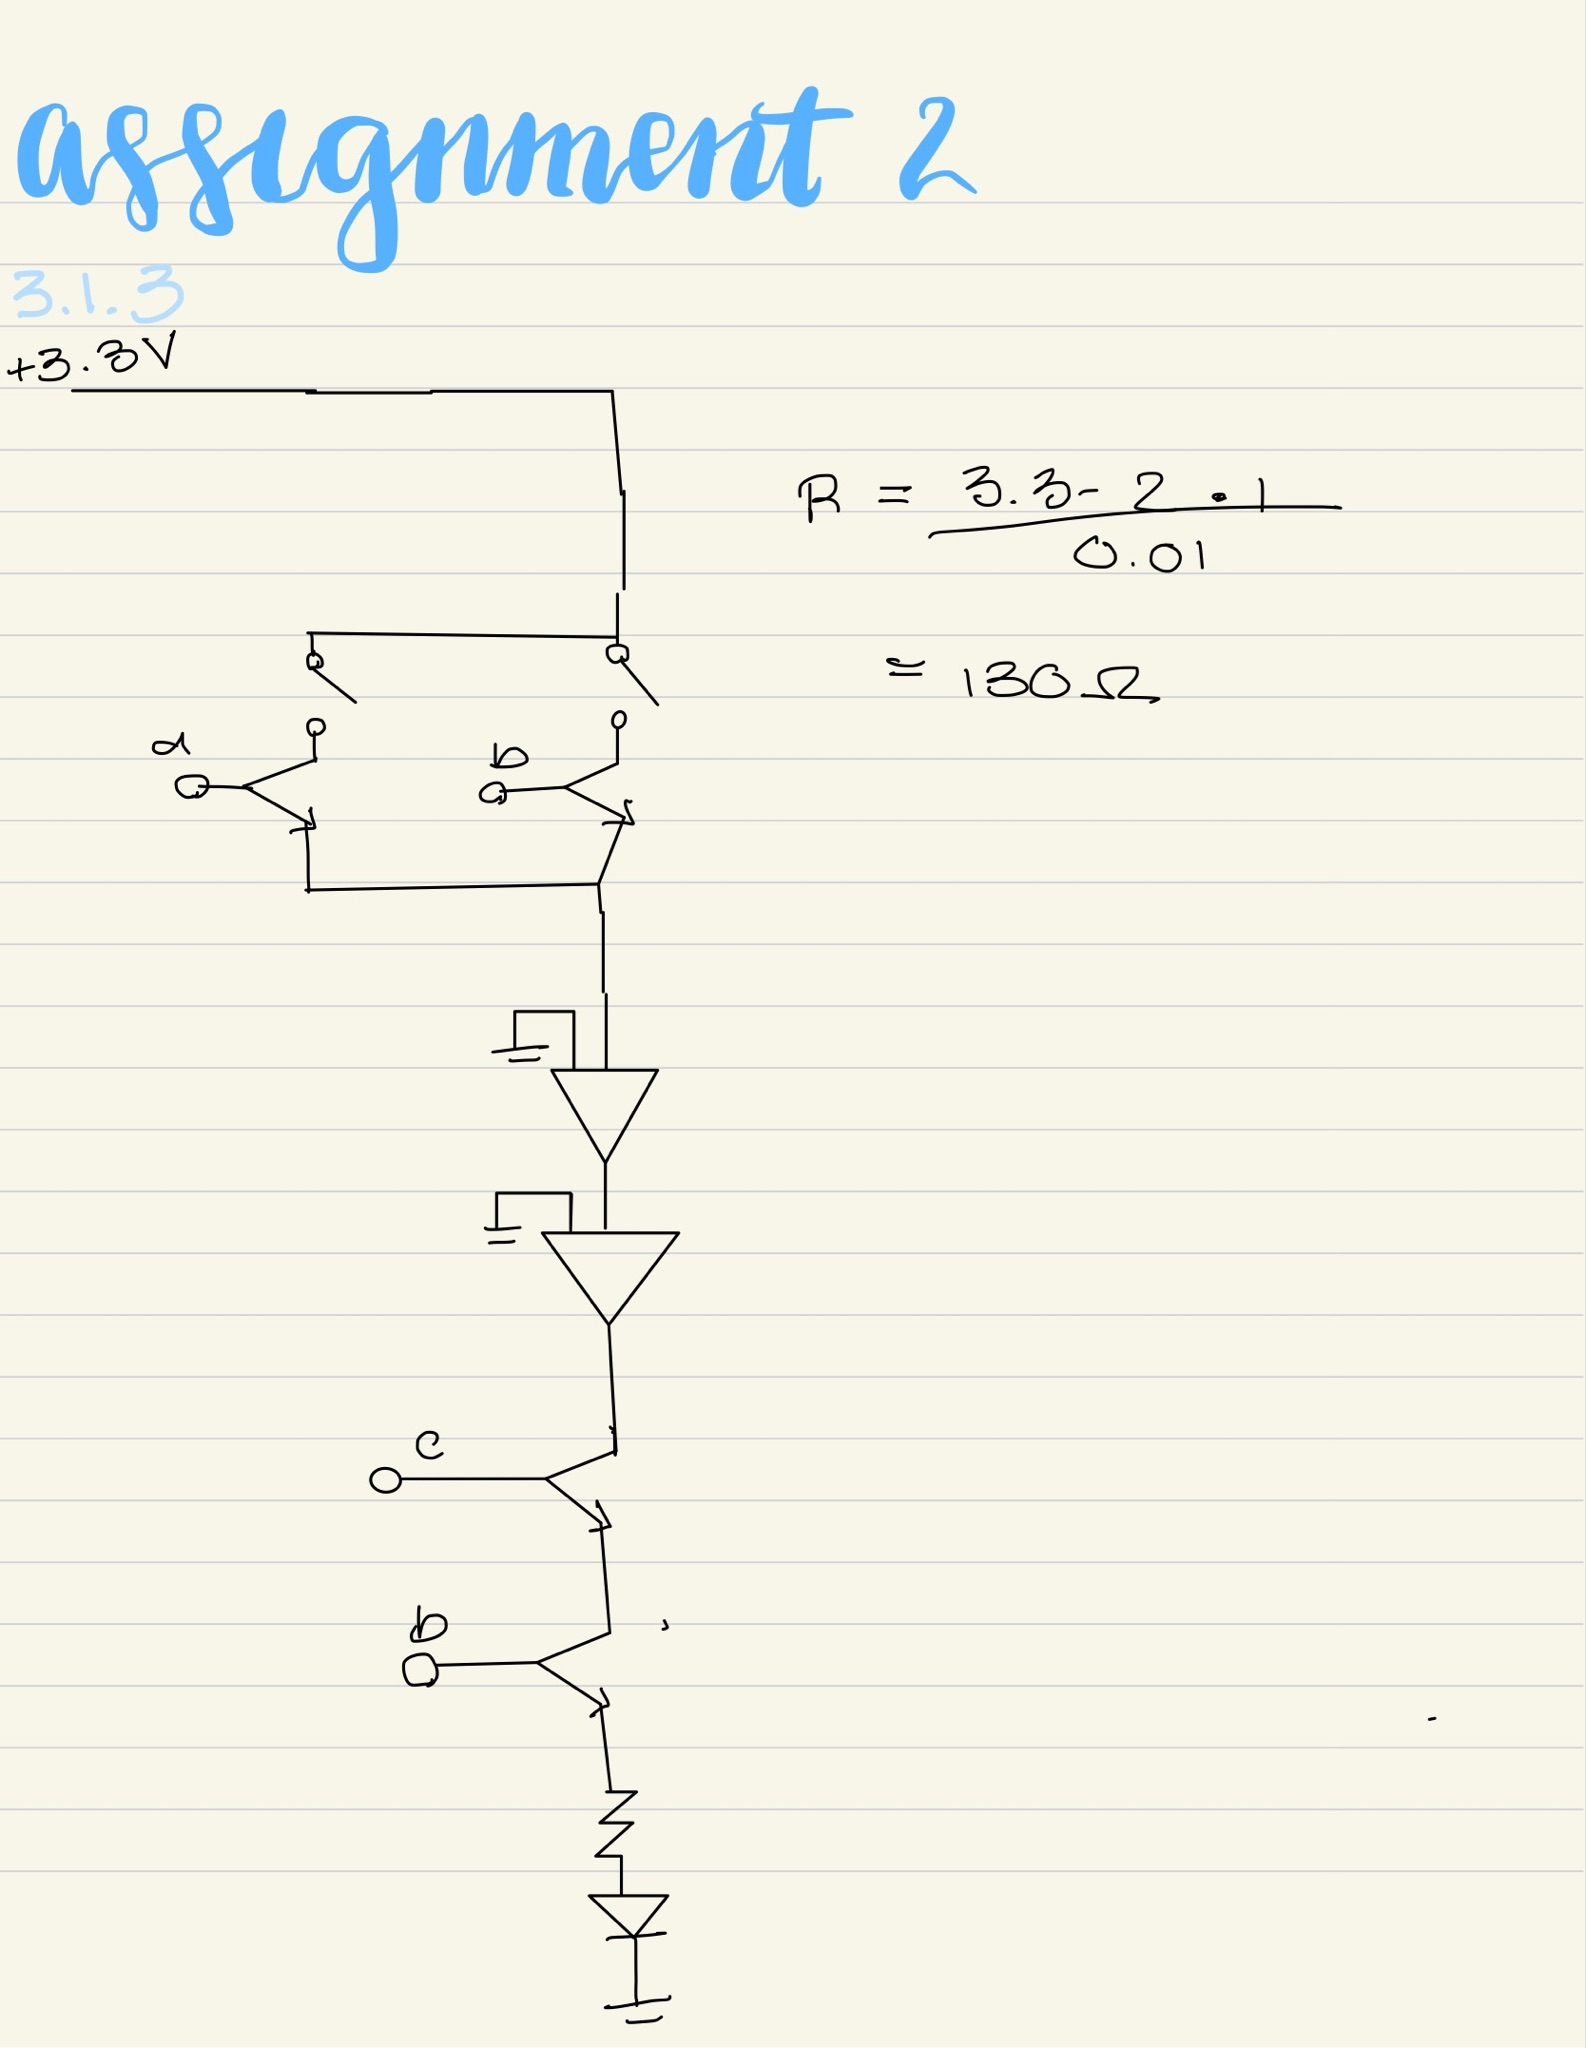 assignment 2
3.1.3
+3.3V
R = 3.3 - 2 · 1
0.01
= 130 Ω
a
b
c
b